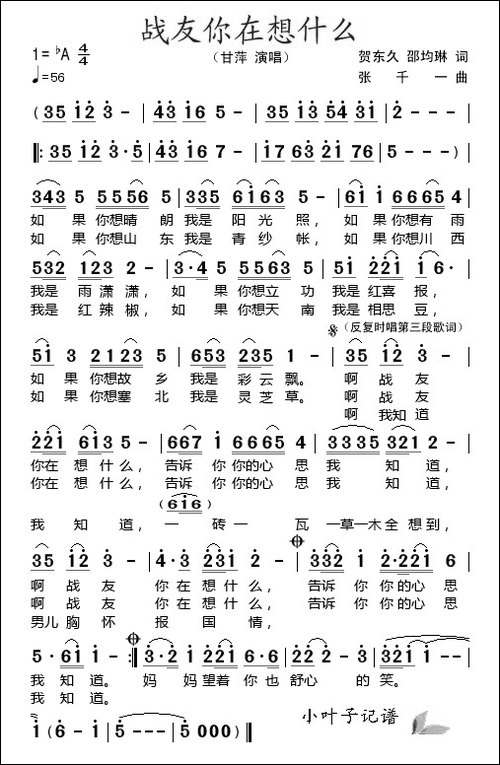 战友你在想什么
1=♭A 4/4 （甘萍 演唱） 贺东久 邵均琳 词
♩=56 张 千 一 曲
(35 12 3- | 43 16 5- | 35 12 54 31 | 2--- |
‖: 35 12 3·5 | 43 16 7- | 17 63 21 76 | 5--- ) |
343 5 5556 5 | 335 6163 5- | 61 1 6665 4 |
如 果 你想晴 朗我是 阳 光 照， 如 果你想有 雨
如 果 你想山 东我是 青 纱 帐， 如 果你想川 西
532 123 2- | 3·4 5 5563 5 | 51 221 16· |
我是 雨潇 潇， 如 果 你想立 功 我是红喜 报，
我是 红辣 椒， 如 果 你想天 南 我是相思 豆，
𝄋（反复时唱第三段歌词）
51 3 2123 5 | 653 235 1- | 35 12 3- |
如 果 你想故 乡 我是 彩 云飘。 啊 战 友
如 果 你想塞 北 我是 灵 芝草。 啊 战 友
啊 我知 道
221 613 5- | 667 1 6665 4 | 3335 321 2- |
你在 想 什么， 告诉 你 你的心 思 我 知 道，
你在 想 什么， 告诉 你 你的心 思 我 知 道，
(616)
我 知 道， 一 砖 一 瓦 一草一木全 想到，
35 12 3- | 4·3 231 2- | 332 1 2·221 6 |
啊 战 友 你 在 想 什 么， 告诉 你 你 的心 思
啊 战 友 你 在 想 什 么， 告诉 你 你 的心 思
男儿 胸 怀 报 国 情，
5· 61 1- :‖ 3·2 1 2216 | 5·3 2- | 321 1-- |
我 知 道。 妈 妈望着 你 也 舒心 的 笑。
我 知 道。
1 (6·1- | 5--- | 5 000) ‖
小叶子记谱